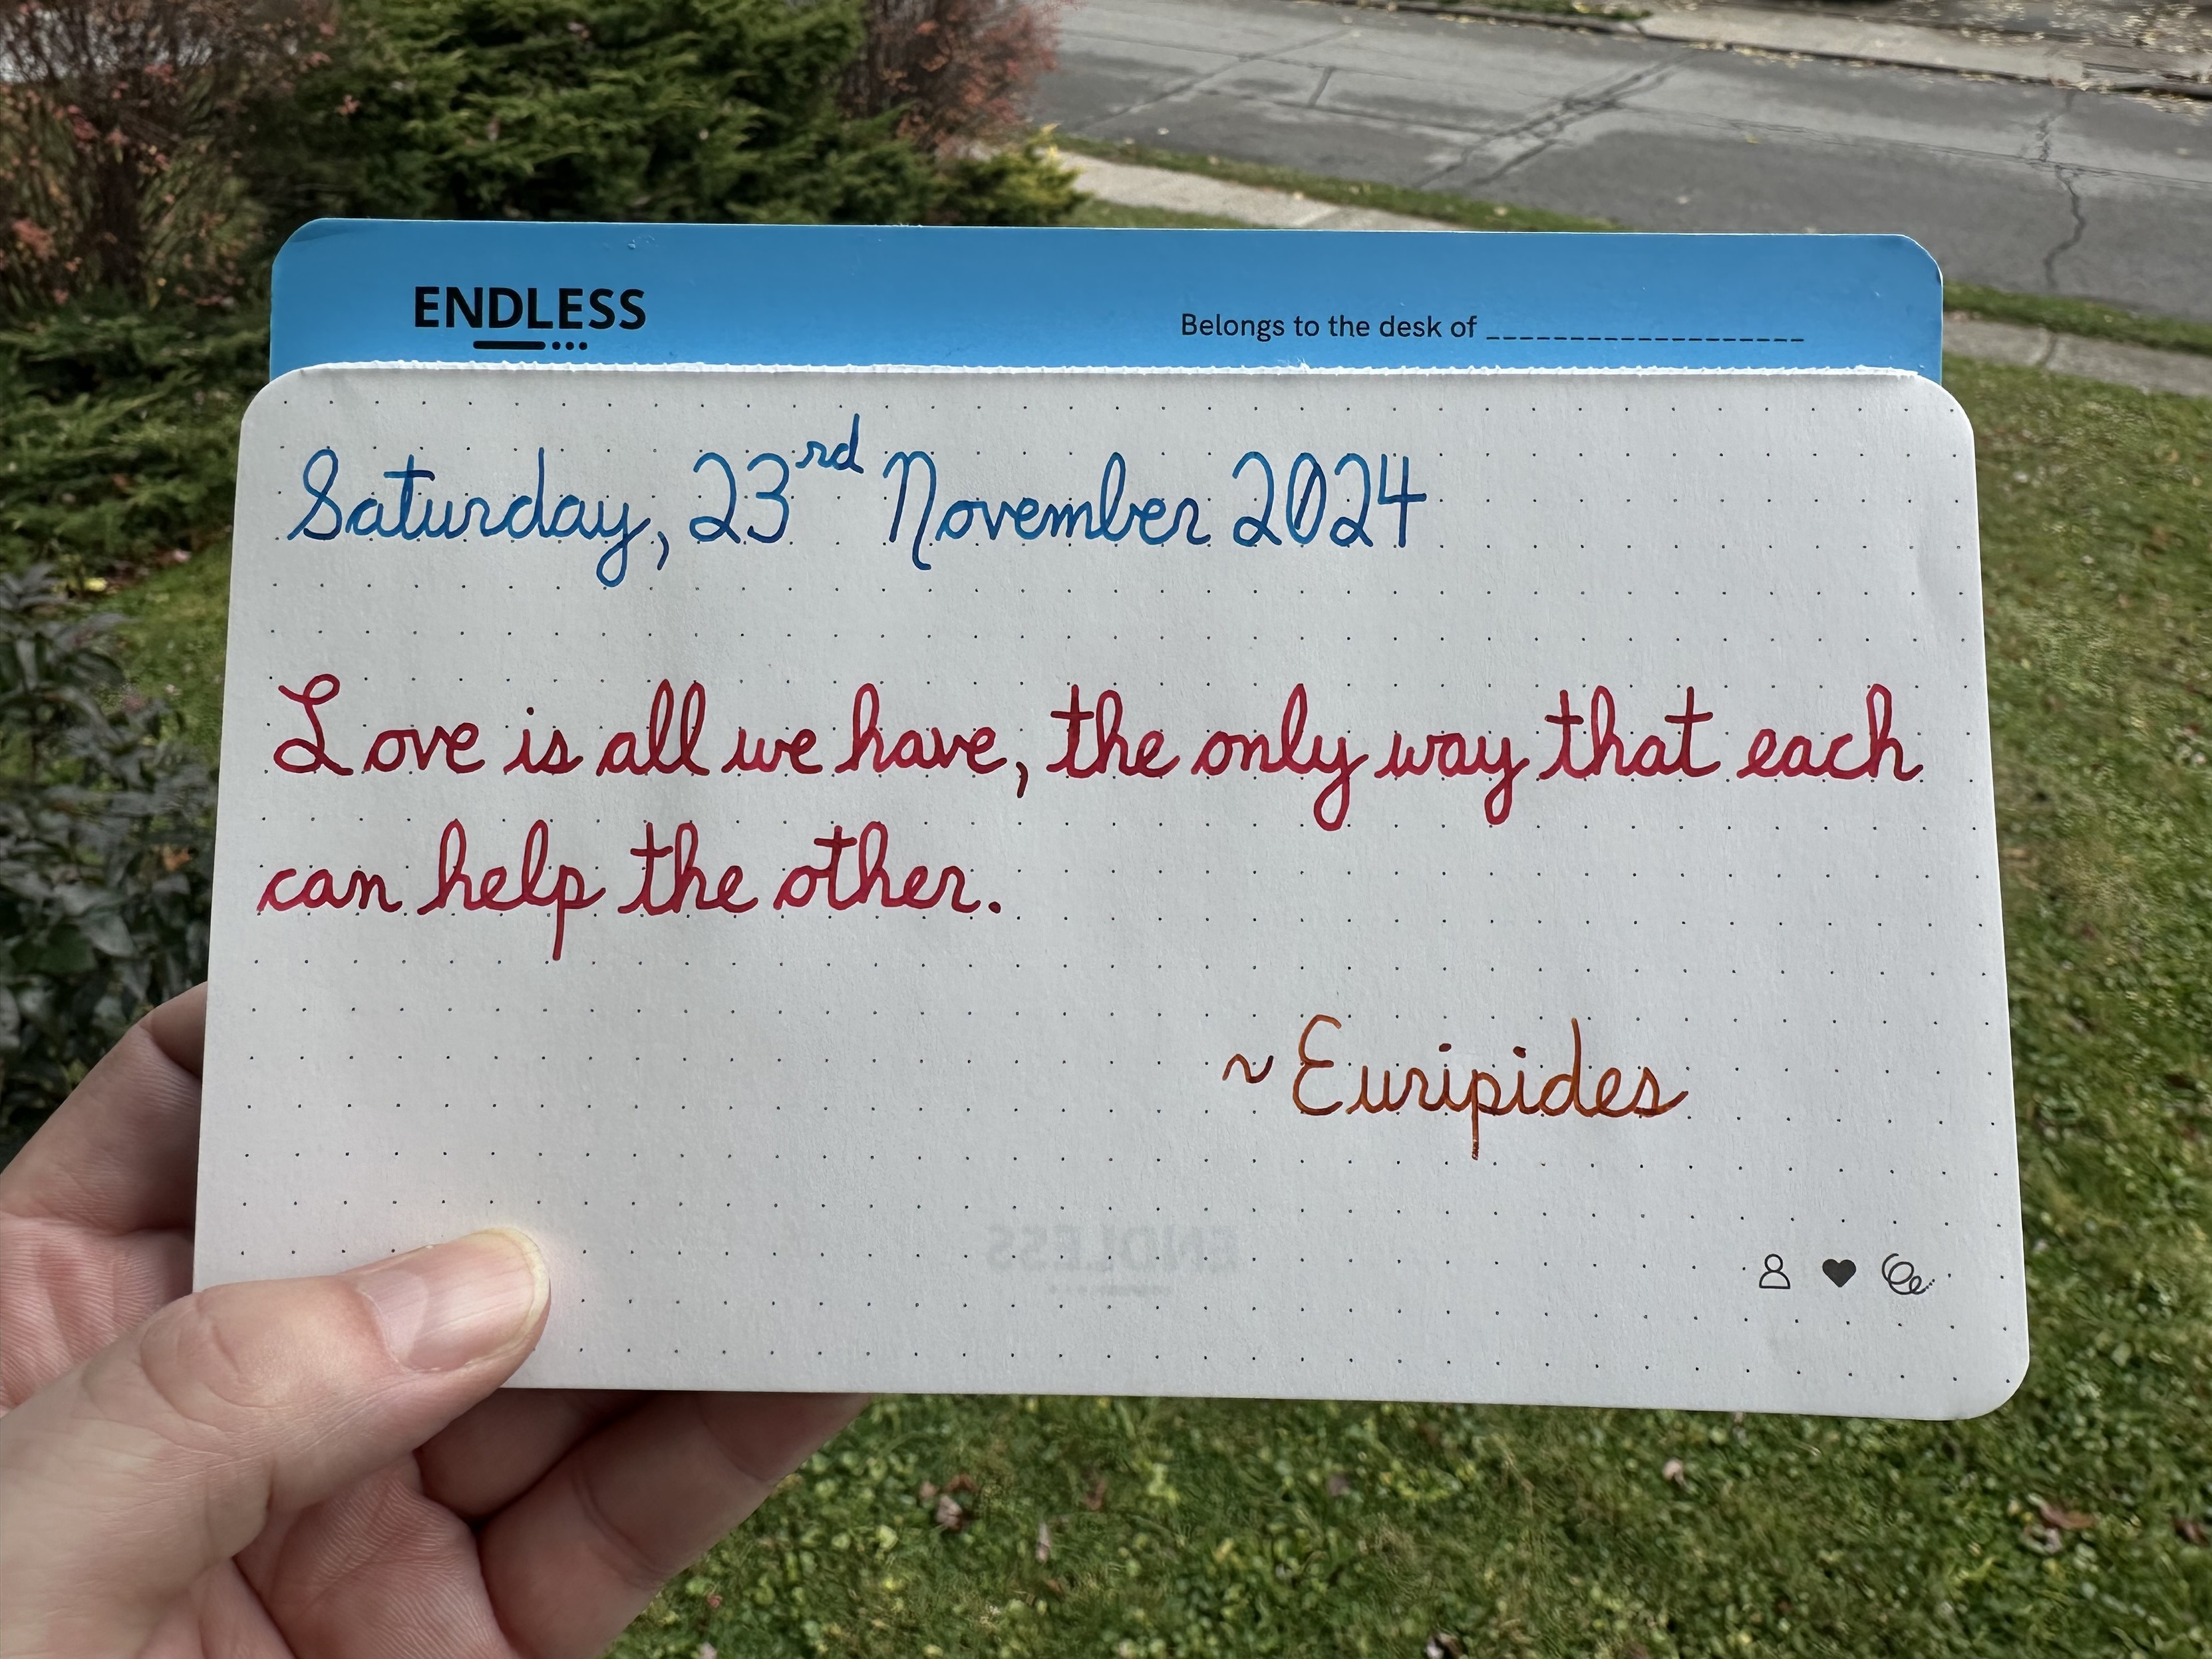 ENDLESS
Belongs to the desk of ___________________
Saturday, 23rd November 2024
Love is all we have, the only way that each
can help the other.
~ Euripides
ENDLESS